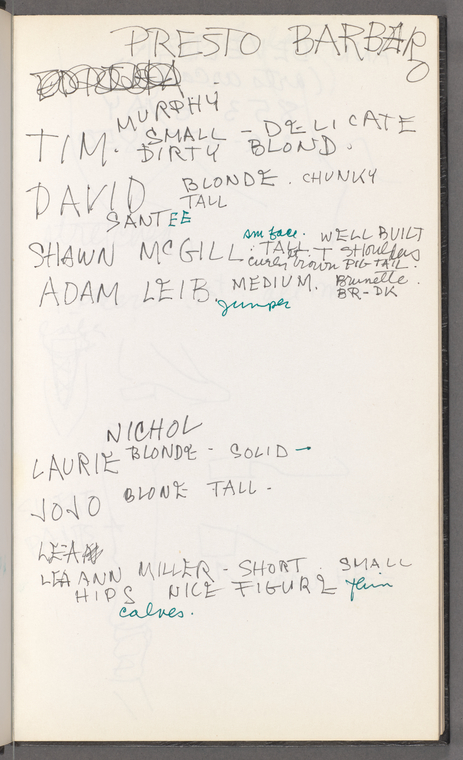 PRESTO BARBER
MURPHY
TIM. SMALL - DELICATE
DIRTY BLOND.
DAVID BLONDE. CHUNKY
TALL
SANTEE
sm face. WELL BUILT
SHAWN McGILL. TALL. T Shoulders
curly brown PIG TAIL.
ADAM LEIB MEDIUM. Brunette.
BR-DK
jumper
NICHOL
LAURIE BLONDE - SOLID -
JOJO BLONE TALL -
LEA
LEA ANN MILLER - SHORT. SMALL
HIPS NICE FIGURE thin
calves.